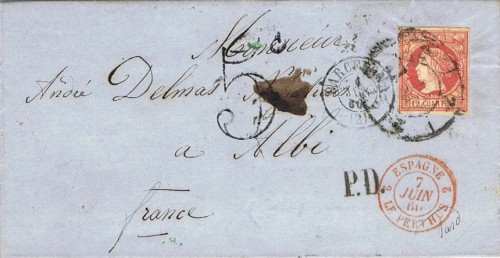 Monsieur
André Delmas
a
Albi
France
5
BARCELONA
P.D.
ESPAGNE
7
JUIN
60
2 LE PERTHUS 2
12 CUARTOS